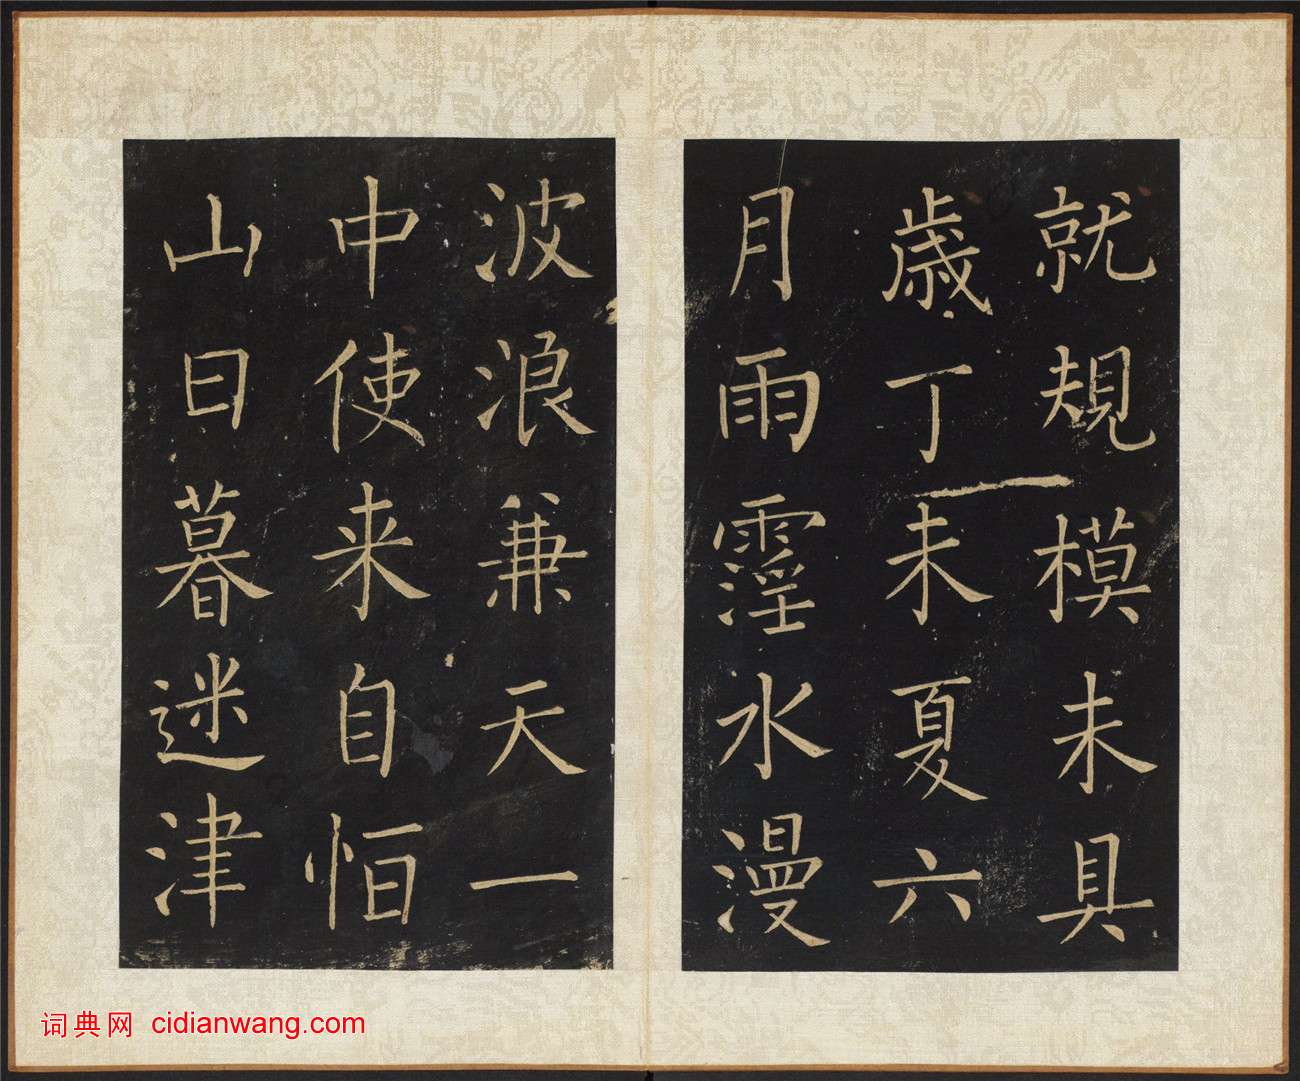 就規模未具
歲丁未夏六
月雨霪水漫
波浪兼天一
中使来自恒
山日暮迷津
词典网 cidianwang.com